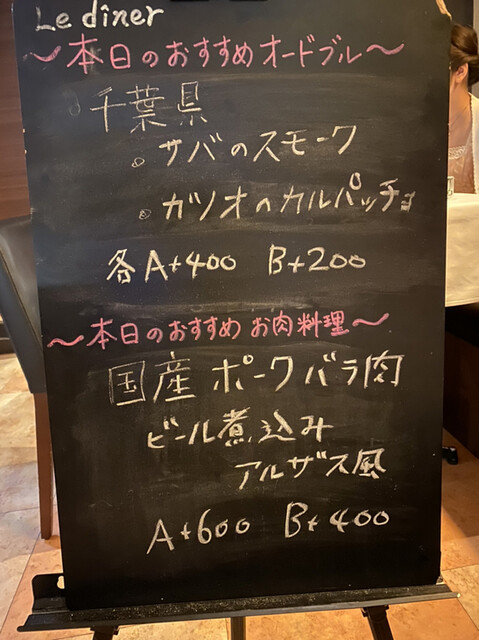 Le dîner
～本日のおすすめオードブル～
◦千葉県
◦サバのスモーク
◦カツオのカルパッチョ
各A+400 B+200
～本日のおすすめ お肉料理～
国産ポークバラ肉
ビール煮込み
アルザス風
A+600 B+400